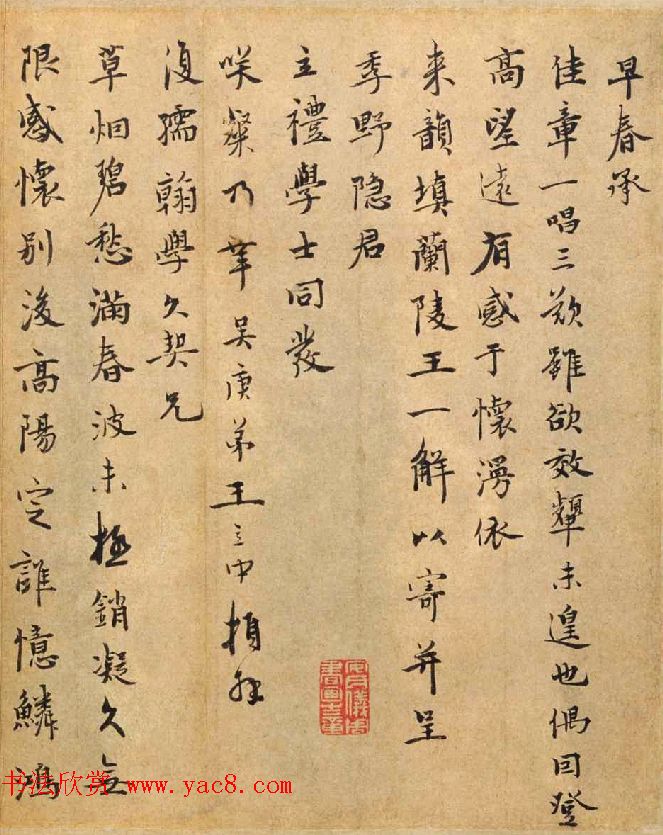 早春承
佳章一唱三歎雖欲效颦未遑也偶因登
高望遠有感于懷漫依
来韻填蘭陵王一解以寄并呈
季野隐君
主禮學士同發
咲粲乃幸吴庚弟王立中頓拜
復孺翰學久契兄
草烟碧愁滿春波未極銷凝久無
限感懷别後高陽定誰憶鱗鴻
书法欣赏 www.yac8.com